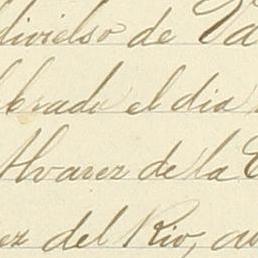 divielso de Va
lebrada el dia
Alvarez de la C
ez del Rio, au